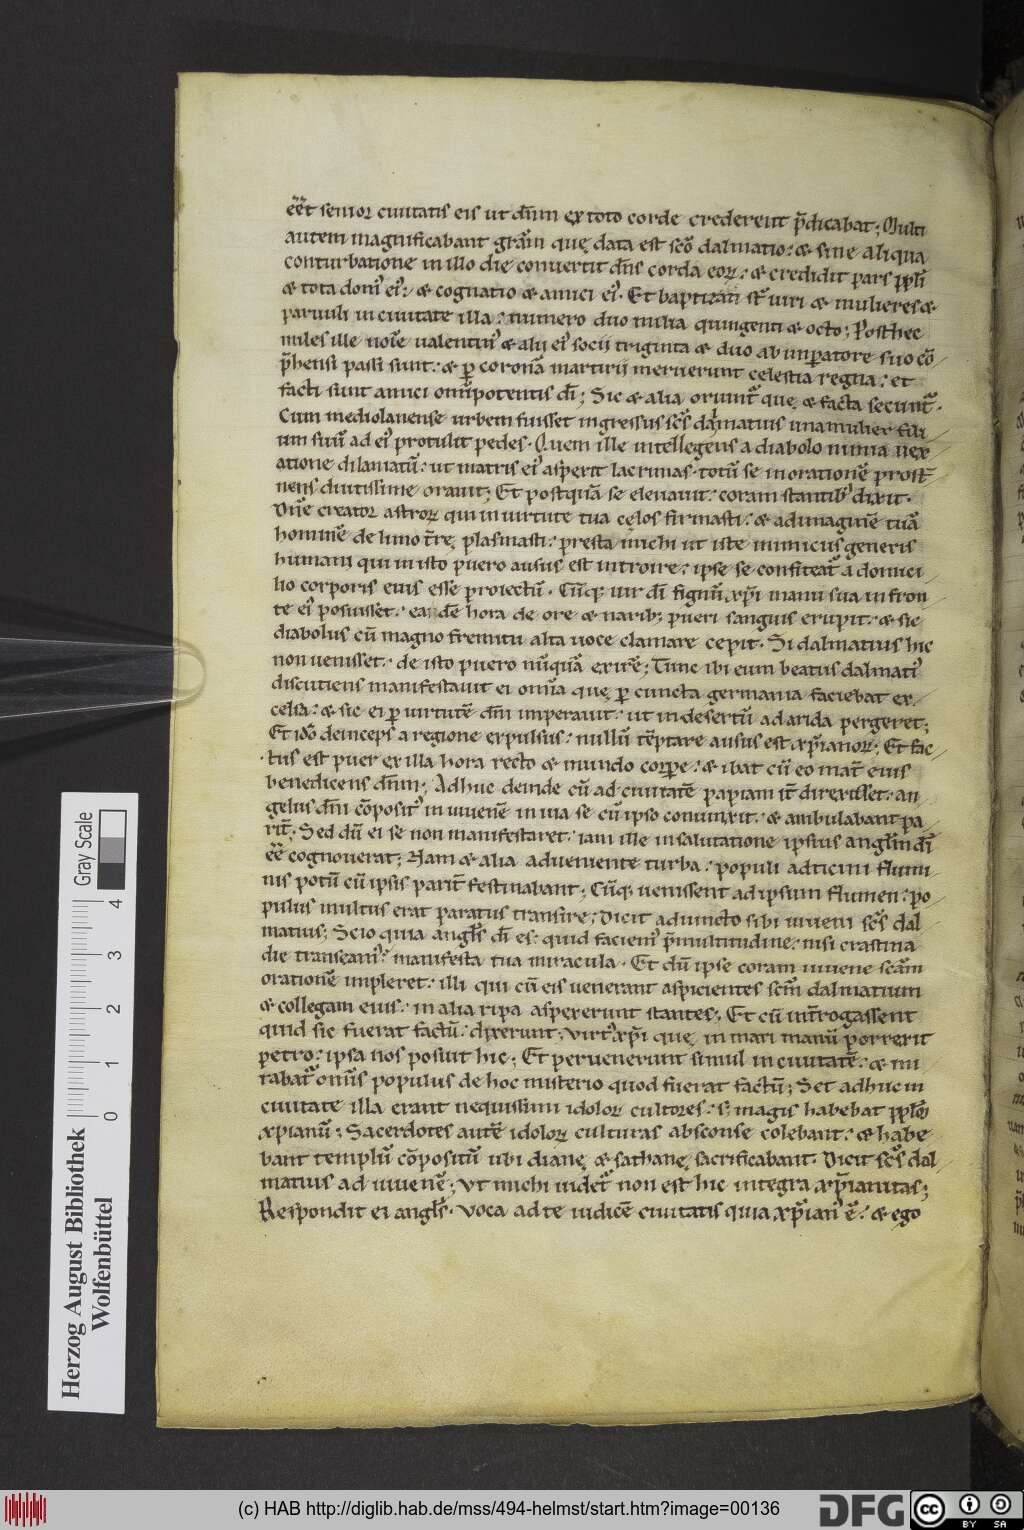 eēt senior ciuitatis eis ut dn̄m ex toto corde crederent p̄dicabat; Multi
autem magnificabant grām que data est sc̄o dalmatio: & sine aliqua
conturbatione in illo die conuertit dn̄s corda eoꝝ: & credidit pars pp̄li
& tota domꝰ eiꝰ: & cognatio & amici eiꝰ. Et baptizati st̄ uiri & mulieres &
paruuli in ciuitate illa: numero duo milia quingenti & octo; Posthec
miles ille noīe ualentinꝰ & alii eiꝰ socii triginta & duo ab imperatore suo cō
p̄hensi passi sunt: & ꝑ coronā martirii meruerunt celestia regna: et
facti sunt amici omīpotentis dī; Sic & alia oriunt̄ que & facta secunt̄.
Cum mediolanense urbem fuisset ingressus sc̄s dalmatius una mulier fili
um suū ad eiꝰ protulit pedes. Quem ille intellegens a diabolo nimia uex
atione dilaniatū: ut matris eiꝰ asperit lacrimas. totū se in orationē prost̄
nens diutissime orauit; Et postquā se eleuauit: coram stantibꝰ dixit.
Dn̄e creator astroꝝ qui in uirtute tua cęlos firmasti: & ad imaginē tuā
hominē de limo t̄re plasmasti: presta michi ut iste inimicus generis
humani qui in isto puero ausus est introire: ipse se confiteat̄ a domici
lio corporis eius esse proiectū. Cūqꝫ uir dī signū xp̄i manu sua in fron
te eiꝰ posuisset: eadē hora de ore & naribꝫ pueri sanguis erupit: & sic
diabolus cū magno fremitu alta uoce clamare cepit. Si dalmatius hic
non uenisset: de isto puero nūquā exirē; Tunc ibi eum beatus dalmatiꝰ
discutiens manifestauit ei omīa que ꝑ cuncta germania faciebat ex
celsa: & sic ei ꝑ uirtutē dn̄i imperauit: ut in desertū ad arida pergeret;
Et idō deinceps a regione expulsus: nullū tēptare ausus est xp̄ianoꝝ; Et fac
tus est puer ex illa hora recto & mundo corꝑe: & ibat cū eo mat̄ eius
benedicens dn̄m; Adhuc deinde cū ad ciuitatē papiam it̄ direxisset: an
gelus dn̄i cōpositꝰ in iuuenē in uia se cū ipso coniunxit: & ambulabant pa
rit̄; Sed dū ei se non manifestaret: iam ille in salutatione ipsius angl̄m dī
eē cognouerat; Nam & alia adueniente turba: populi ad ticini flumi
nis potū cū ipsis parit̄ festinabant; Cūqꝫ uenissent ad ipsum flumen: po
pulus multus erat paratus transire; Dicit adiuncto sibi iuueni sc̄s dal
matius; Scio quia angl̄s dī es: quid faciemꝰ p̄ multitudine: nisi crastina
die transeamꝰ: manifesta tua miracula. Et dū ipse coram iuuene scām
orationē impleret: illi qui cū eis uenerant aspicientes scm̄ dalmatium
& collegam eius: in alia ripa aspererunt stantes; Et cū int̄rogassent
quid sic fuerat factū: dixerunt; Virtꝰ xp̄i que in mari manū porrexit
petro: ipsa nos posuit hic; Et peruenerunt simul in ciuitatē: & mi
rabat̄ omīs populus de hoc misterio quod fuerat factū; Set adhuc in
ciuitate illa erant nequissimi idoloꝝ cultores: s; magis habebat pp̄lm̄
xp̄ianū; Sacerdotes autē idoloꝝ culturas absconse colebant: & habe
bant templū cōpositū ubi diane & sathane sacrificabant. Dicit sc̄s dal
matius ad iuuenē; Vt michi uidet̄ non est hic integra xp̄ianitas;
Respondit ei angl̄s. Voca ad te iudicē ciuitatis quia xp̄ianꝰ ē: & ego
Herzog August Bibliothek
Wolfenbüttel
Gray Scale
0 1 2 3 4
(c) HAB http://diglib.hab.de/mss/494-helmst/start.htm?image=00136
DFG
cc BY SA